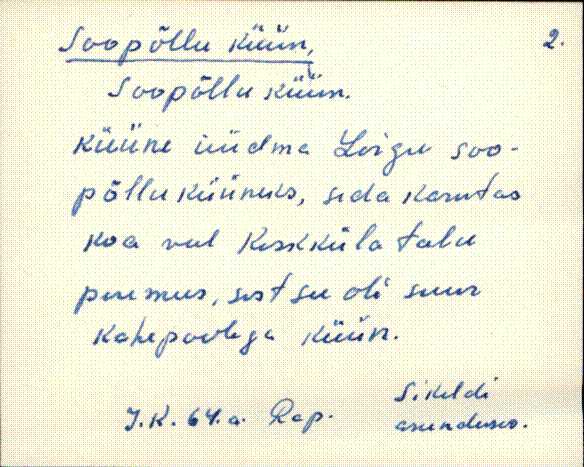 Soopõllu küün, 2.
Soopõllu küün.
Küüne üüdma Loigu soo-
põllu küüneks, seda karutas
koa veel Keskküla talu
peremees, sest see oli suur
kahepoolega küün.
J.K. 64.a. Rap. Sikeldi
asunduses.